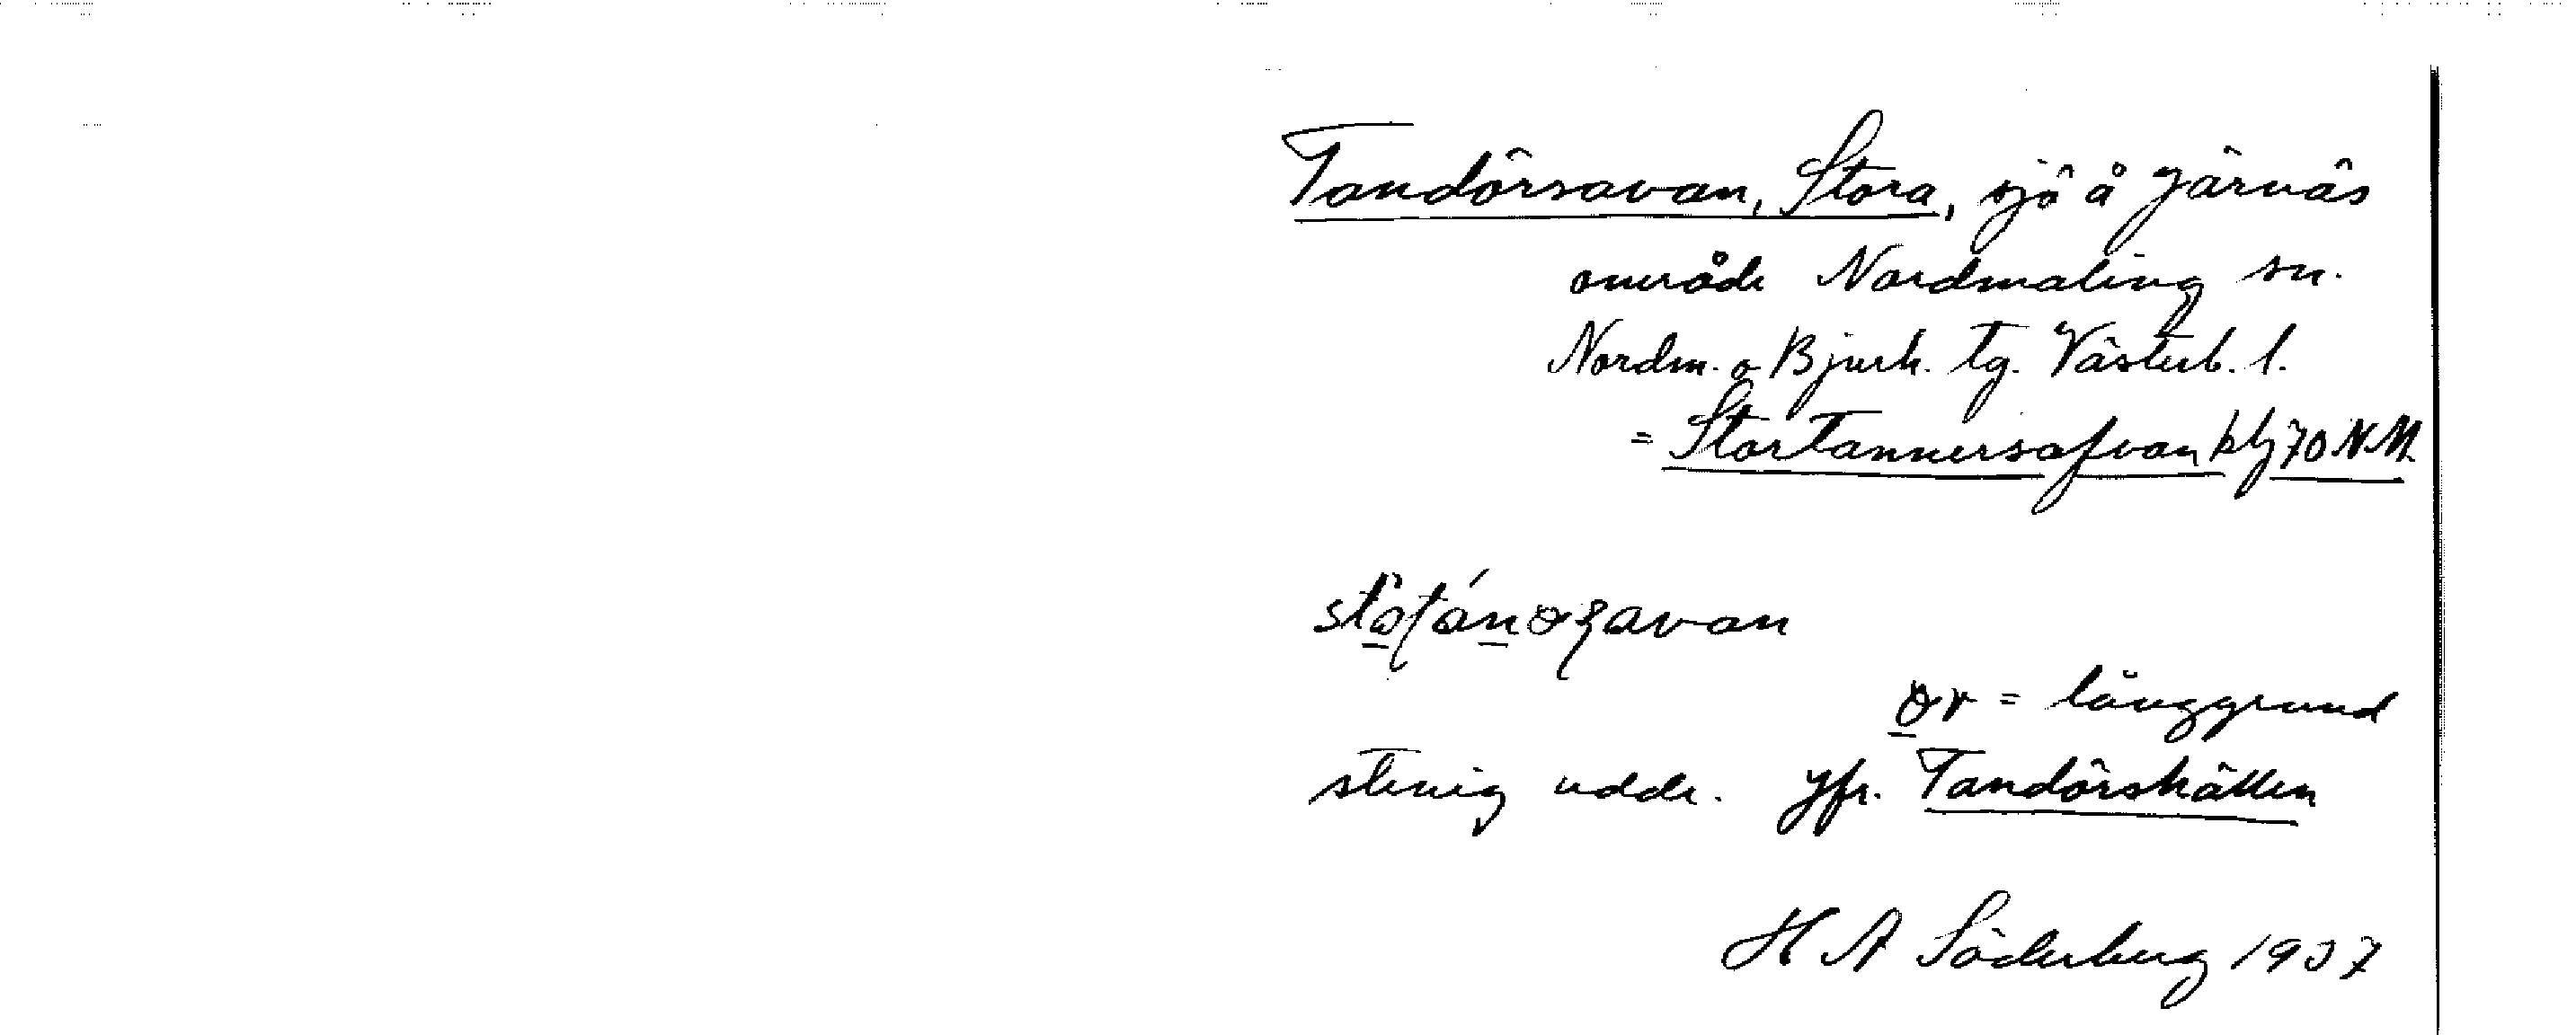 Tandörsavan, Stora, sjö å Järnäs
område Nordmaling sn.
Nordm. o Bjurh. tg. Västerb. l.
= Stortannersafvan blj 70 NM
= långgrund
stenig udde. Jfr. Tandörskällen
H A Söderberg 1937